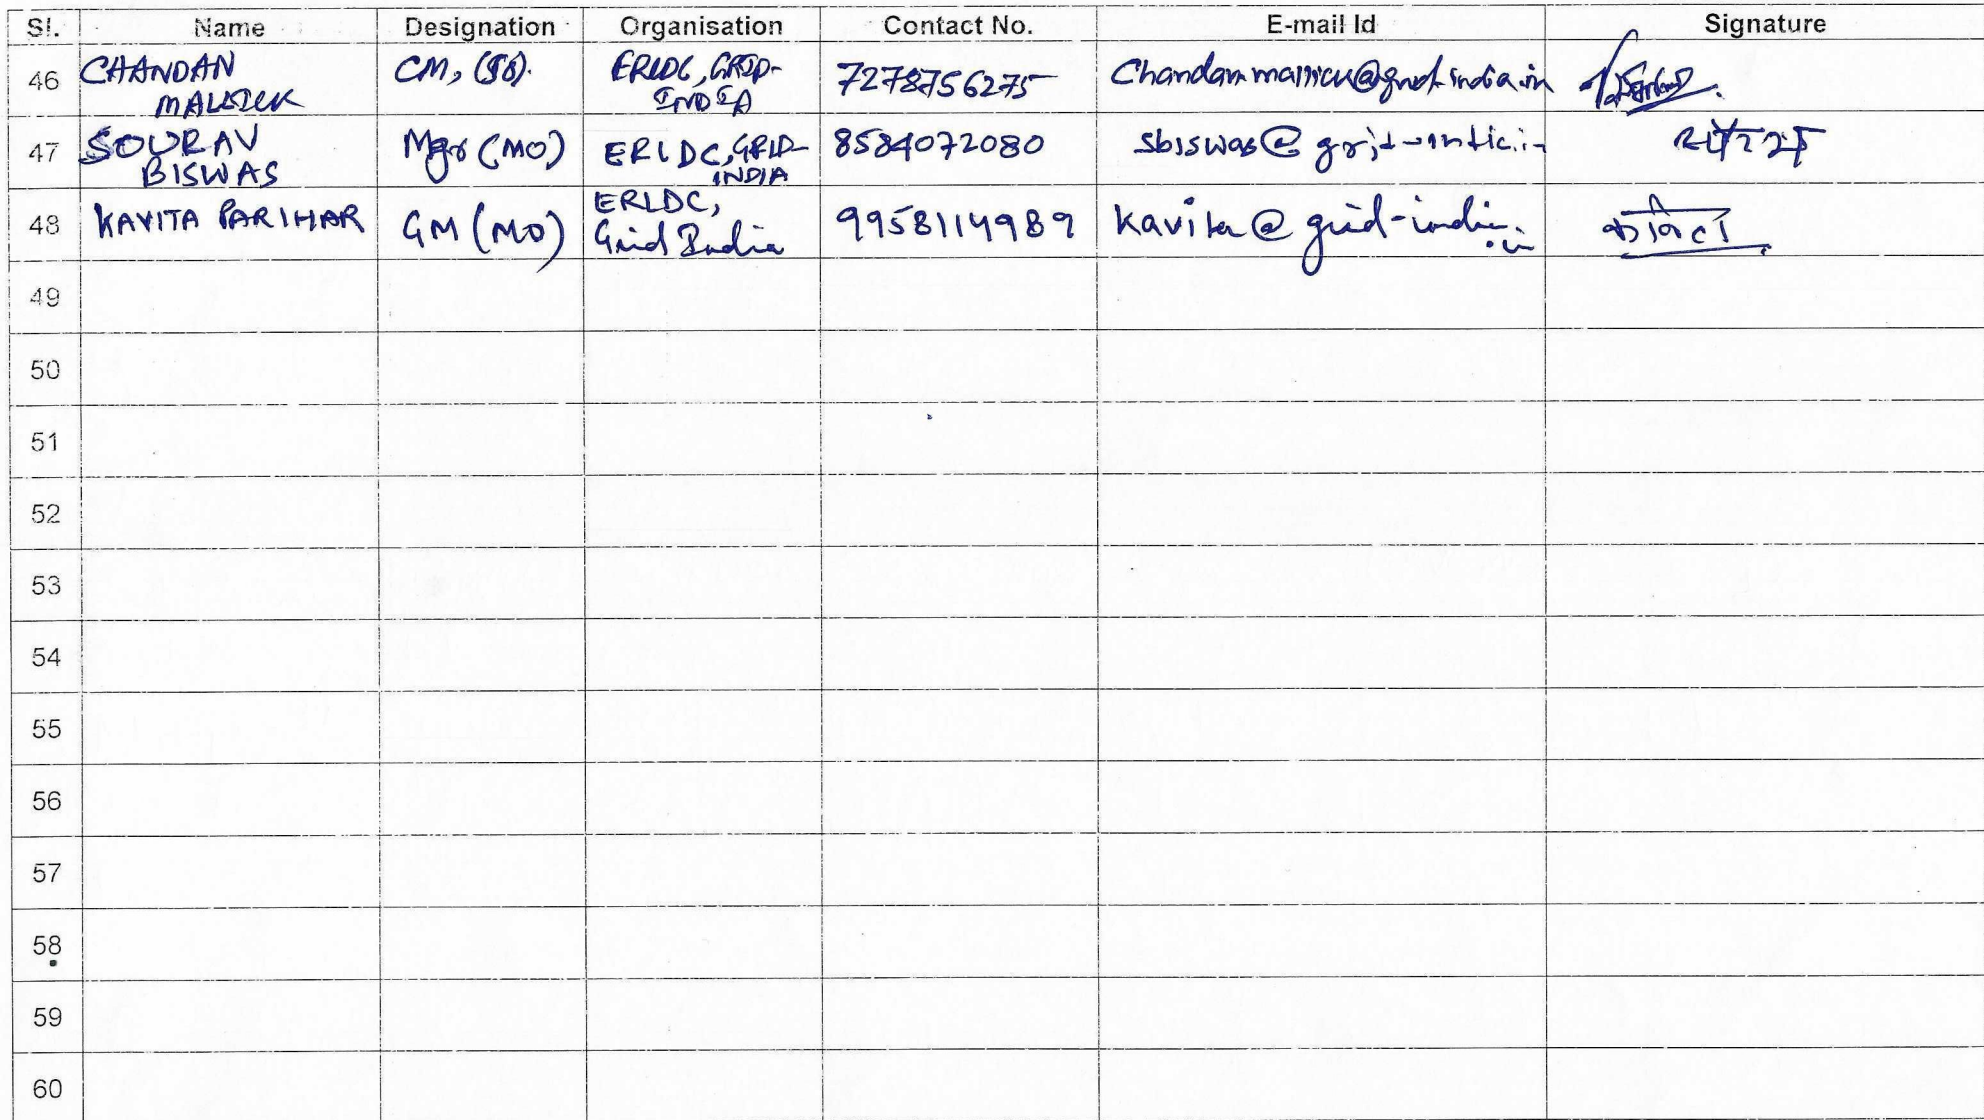 Sl. Name Designation Organisation Contact No. E-mail Id Signature
46 CHANDAN MALLICK CM, (SO). ERLDC, GRID-INDIA 7278756275 Chandan.mallick@grid-india.in
47 SOURAV BISWAS Mgr (MO) ERLDC, GRID-INDIA 8584072080 sbiswas@grid-india.in
48 KAVITA PARIHAR GM (MO) ERLDC, Grid India 9958114989 kavita@grid-india.in कविता
49
50
51
52
53
54
55
56
57
58
59
60